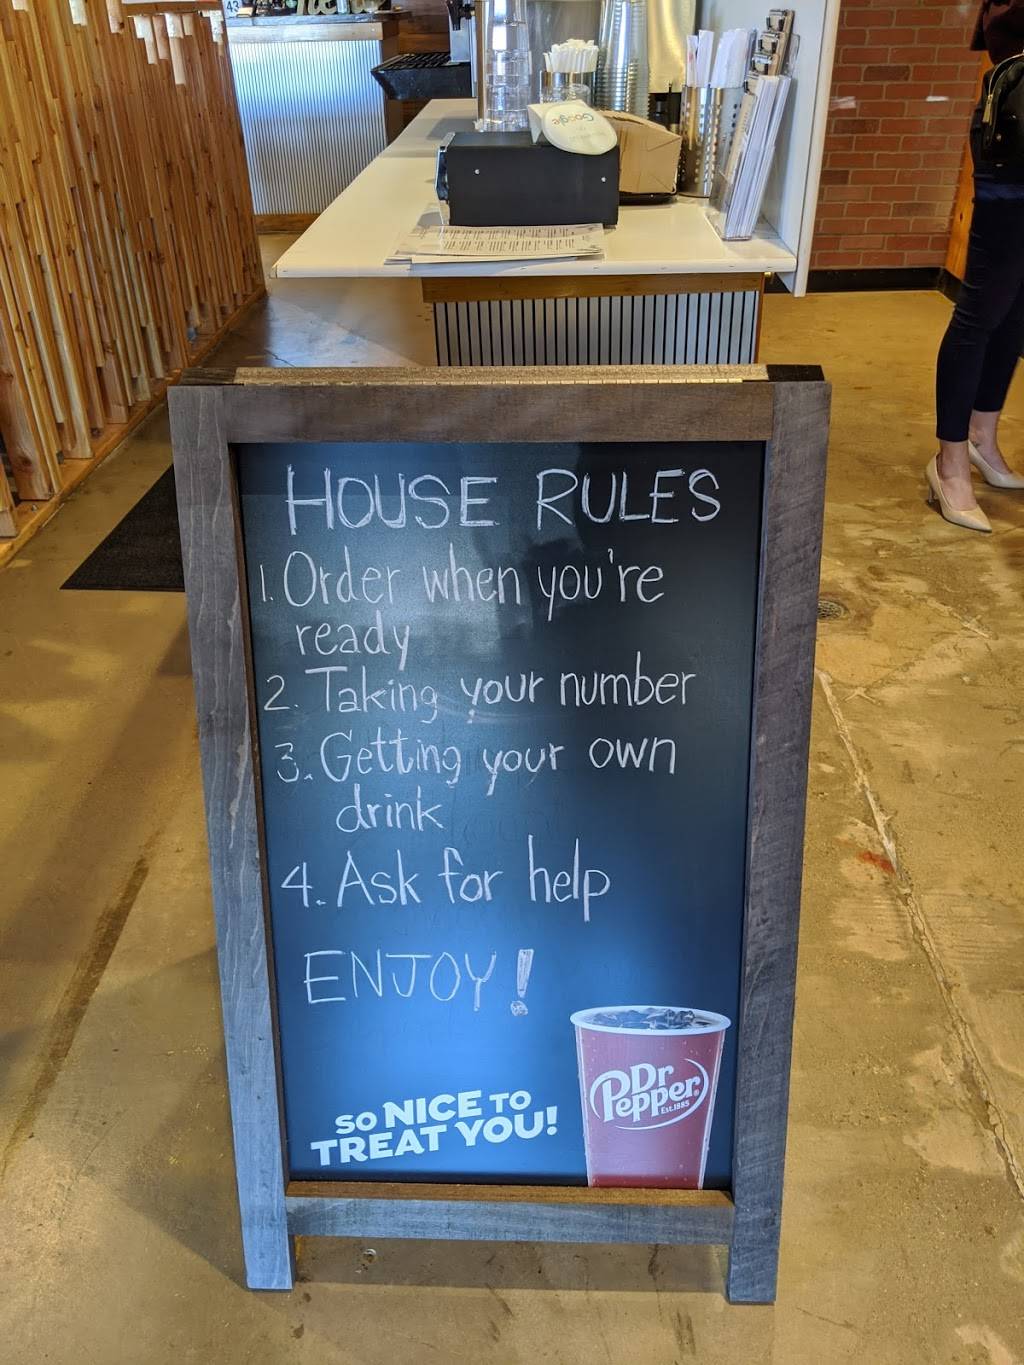 43
Google
HOUSE RULES
1. Order when you're
ready
2. Taking your number
3. Getting your own
drink
4. Ask for help
ENJOY!
SO NICE TO
TREAT YOU!
Dr
Pepper
Est. 1885